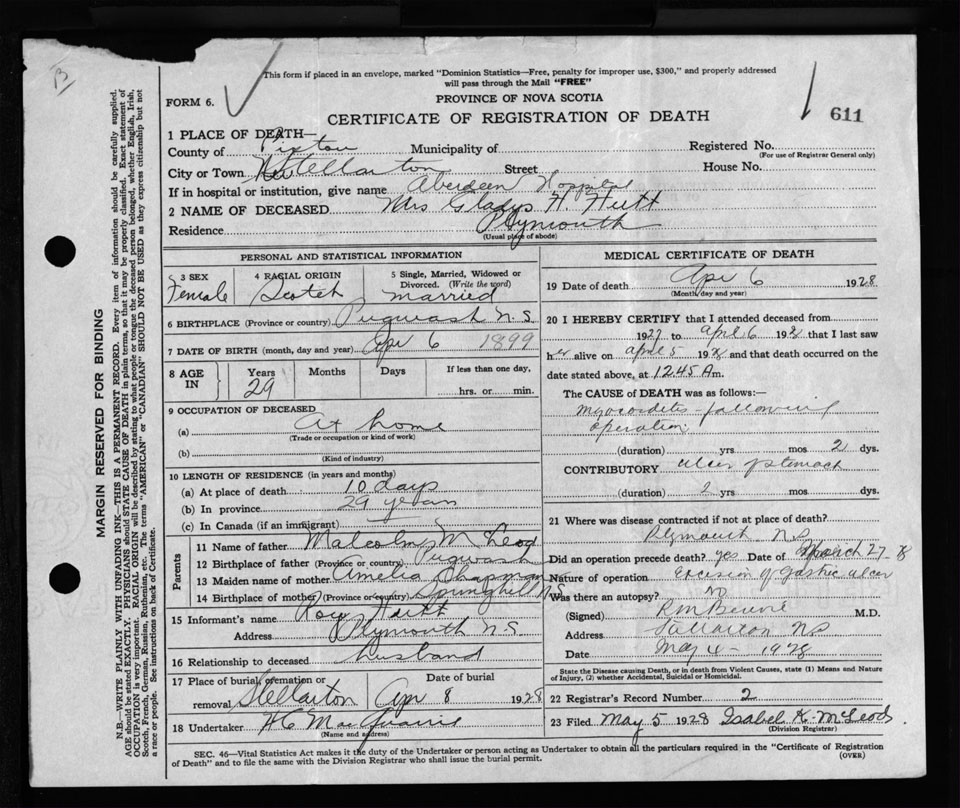 B
This form if placed in an envelope, marked "Dominion Statistics—Free, penalty for improper use, $300," and properly addressed
will pass through the Mail "FREE"
FORM 6.
PROVINCE OF NOVA SCOTIA
CERTIFICATE OF REGISTRATION OF DEATH
611
MARGIN RESERVED FOR BINDING
N.B.—WRITE PLAINLY WITH UNFADING INK—THIS IS A PERMANENT RECORD. Every item of information should be carefully supplied.
AGE should be stated EXACTLY. PHYSICIANS should STATE CAUSE OF DEATH in plain terms, so that it may be properly classified. Exact statement of
OCCUPATION is very important. RACIAL ORIGIN will be described by stating to what people or tongue the deceased person belonged, whether English, Irish,
Scotch, French, German, Russian, Ruthenian, etc. The terms "AMERICAN" or "CANADIAN" SHOULD NOT BE USED as they express citizenship but not
a race or people. See instructions on back of Certificate.
1 PLACE OF DEATH—
County of Pictou Municipality of Registered No.
(For use of Registrar General only)
City or Town Stellarton Street House No.
If in hospital or institution, give name Aberdeen Hospital
2 NAME OF DECEASED Mrs Gladys H. Hutt
Residence Plymouth
(Usual place of abode)
PERSONAL AND STATISTICAL INFORMATION
3 SEX 4 RACIAL ORIGIN 5 Single, Married, Widowed or
Divorced. (Write the word)
Female Scotch Married
6 BIRTHPLACE (Province or country) Pugwash N.S.
7 DATE OF BIRTH (month, day and year) Apr 6 1899
8 AGE IN Years Months Days If less than one day,
29 hrs. or min.
9 OCCUPATION OF DECEASED
(a) At home
(Trade or occupation or kind of work)
(b)
(Kind of industry)
10 LENGTH OF RESIDENCE (in years and months)
(a) At place of death 10 days
(b) In province 29 years
(c) In Canada (if an immigrant)
Parents
11 Name of father Malcolm McLeod
12 Birthplace of father (Province or country) Pugwash
13 Maiden name of mother Amelia Chapman
14 Birthplace of mother (Province or country) Springhill NS
15 Informant's name Roy Hutt
Address Plymouth N.S.
16 Relationship to deceased husband
17 Place of burial, cremation or Date of burial
removal Stellarton Apr 8 1928
18 Undertaker
(Name and address)
MEDICAL CERTIFICATE OF DEATH
19 Date of death Apr 6 1928
(Month, day and year)
20 I HEREBY CERTIFY that I attended deceased from
1927 to April 6 1928 that I last saw
her alive on April 5 1928 and that death occurred on the
date stated above, at 12.45 Am.
The CAUSE OF DEATH was as follows:
Myocarditis – following
operation
(duration) yrs mos 2 dys.
CONTRIBUTORY ulcer of stomach
(duration) 2 yrs mos dys.
21 Where was disease contracted if not at place of death?
Plymouth NS
Did an operation precede death? yes Date of March 27 28
Nature of operation Excision of Gastric ulcer
Was there an autopsy? no
(Signed) M.D.
Address Stellarton NS
Date May 4 – 1928
State the Disease Causing Death, or in Death from Violent Causes, state (1) Means and Nature
of Injury, (2) whether Accidental, Suicidal or Homicidal.
22 Registrar's Record Number 2
23 Filed May 5 1928 Isabel K. McLeod
(Division Registrar)
SEC. 46—Vital Statistics Act makes it the duty of the Undertaker or person acting as Undertaker to obtain all the particulars required in the "Certificate of Registration
of Death" and to file the same with the Division Registrar who shall issue the burial permit.
(OVER)